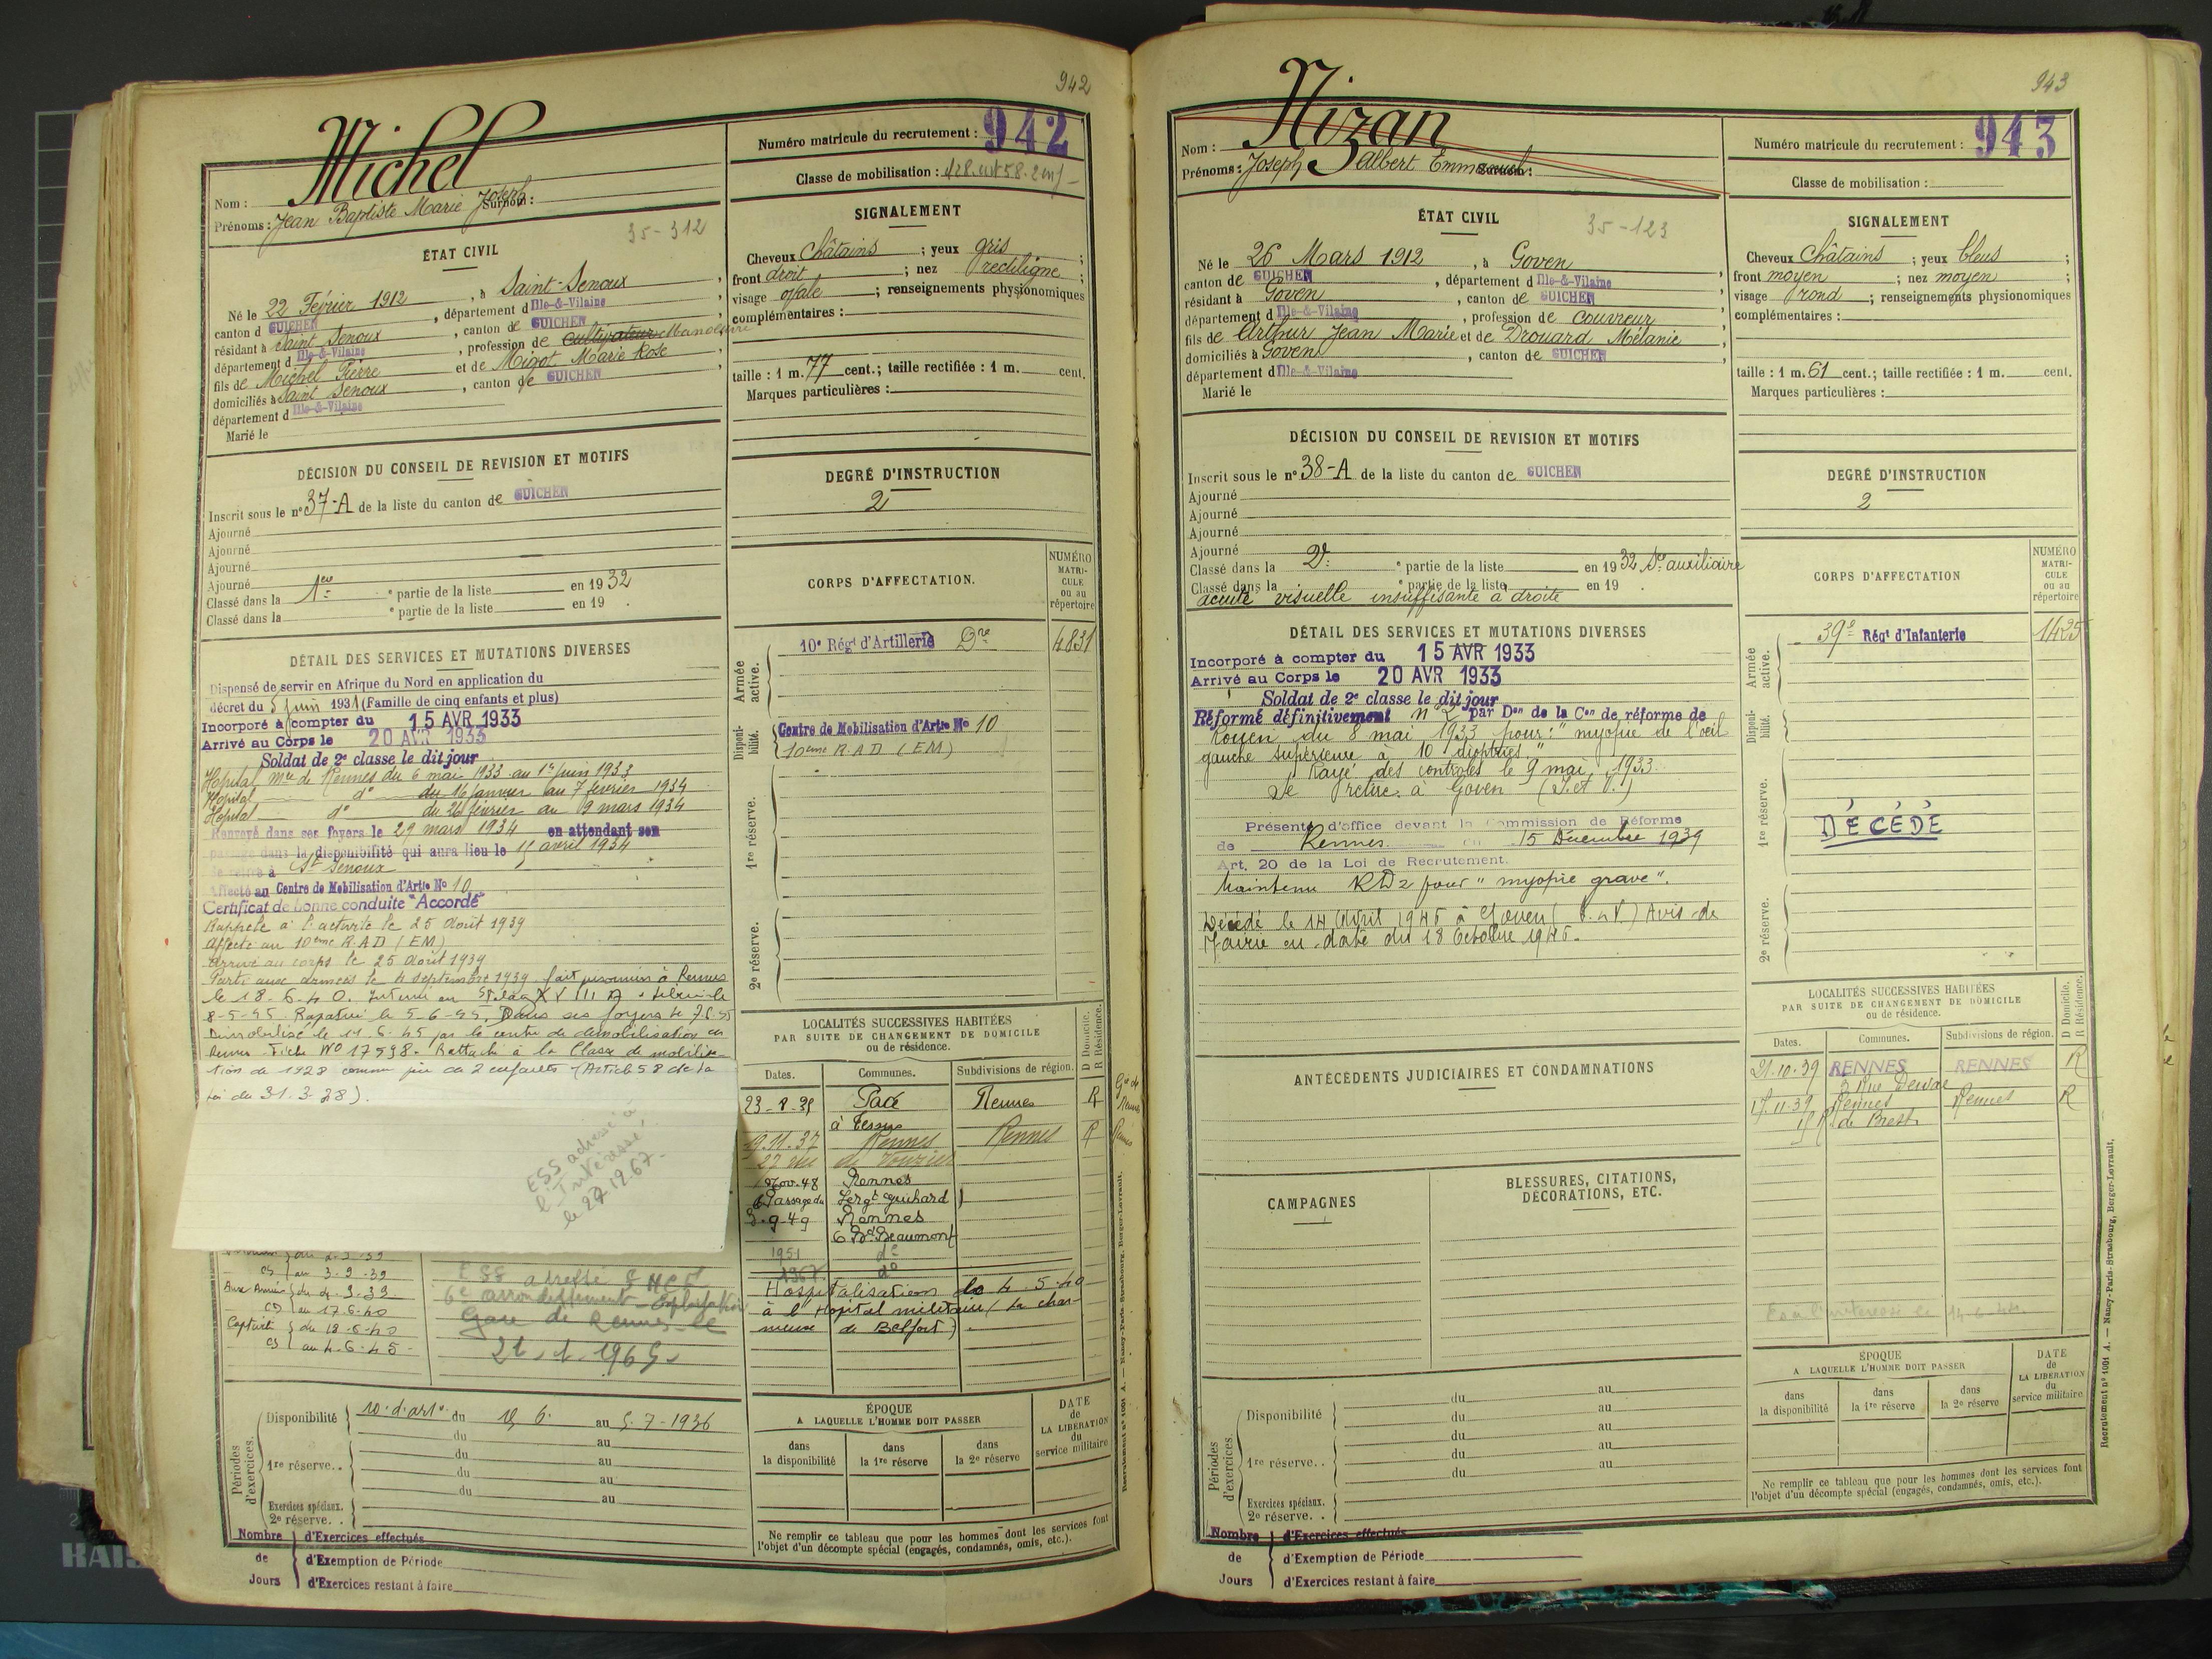 942
Michel
Nom :
Prénoms : Jean Baptiste Marie Joseph Surnom :
Numéro matricule du recrutement : 942
Classe de mobilisation :
ÉTAT CIVIL
35-312
Né le 22 Février 1912, à Saint-Senoux,
canton d GUICHEN, département d Ille-&-Vilaine,
résidant à Saint Senoux, canton de GUICHEN,
département d Ille-&-Vilaine, profession de cultivateur Manoeuvre
fils de Michel Pierre et de Migot Marie Rose,
domiciliés à Saint Senoux, canton de GUICHEN,
département d Ille-&-Vilaine
Marié le
SIGNALEMENT
Cheveux Châtains ; yeux gris ;
front droit ; nez rectiligne ;
visage ovale ; renseignements physionomiques
complémentaires :
taille : 1 m. 77 cent.; taille rectifiée : 1 m. cent.
Marques particulières :
DÉCISION DU CONSEIL DE REVISION ET MOTIFS
Inscrit sous le n° 37-A de la liste du canton de GUICHEN
Ajourné
Ajourné
Ajourné
Ajourné
Classé dans la 1ère partie de la liste en 1932
Classé dans la partie de la liste en 19 .
DEGRÉ D'INSTRUCTION
2
DÉTAIL DES SERVICES ET MUTATIONS DIVERSES
Dispensé de servir en Afrique du Nord en application du
décret du 5 juin 1931 (Famille de cinq enfants et plus)
Incorporé à compter du 15 AVR 1933
Arrivé au Corps le 20 AVR 1933
Soldat de 2e classe le dit jour
Hopital mre de Rennes du 6 mai 1933 au 1er juin 1933
Hopital d° du 16 janvier au 7 février 1934
Hopital d° du 26 février au 9 mars 1934
Renvoyé dans ses foyers le 29 mars 1934 en attendant son
passage dans la disponibilité qui aura lieu le 15 avril 1934
Se retire à St Senoux
Affecté au Centre de Mobilisation d'Artie No 10
Certificat de bonne conduite "Accordé"
Rappelé à l'activité le 25 Août 1939
Affecté au 10ème R.A.D (EM)
Arrivé au corps le 25 Août 1939
Parti aux armées le 4 septembre 1939 fait prisonnier à Rennes
le 18-6-40. Interné au Stalag XVIII A. Libéré le
8-5-45. Rapatrié le 5-6-45. Dans ses foyers le
Démobilisé le par le centre de démobilisation de
Rennes Fiche No 17598. Rattaché à la Classe de mobilisa-
tion de 1928 comme père de 2 enfants (Article 58 de la
Loi du 31.3.28).
ESS adressé à
l'Intéressé
le 27.12.67
CORPS D'AFFECTATION.
NUMÉRO MATRICULE ou au répertoire
Armée active.
10e Régt d'Artillerie Dre 4831
Disponibilité.
Centre de Mobilisation d'Artie No 10
10ème R.A.D (EM)
1re réserve.
2e réserve.
LOCALITÉS SUCCESSIVES HABITÉES
PAR SUITE DE CHANGEMENT DE DOMICILE
ou de résidence.
D Domicile.
R Résidence.
Dates. Communes. Subdivisions de région.
Pacé Rennes R
19.11.37 Rennes Rennes R
Nov. 48 Rennes
Passage du Sergt Guihard
3-9-49 Rennes
6 Bd Beaumont
1951 d°
1967 d°
Hospitalisation le 4.5.40
à l'Hopital militaire (La char-
meuse de Belfort).
au 3-9-39
Aux Armées du 4.9.39
CD au 17.6.40
Captivité du 18-6-40
CS au 4-6-45
6e arrondissement Exploitation
Gare de Rennes le
Périodes d'exercices.
Disponibilité 10e d'arte du 15 6. au 5-7-1936
du au
1re réserve. . du au
du au
du au
Exercices spéciaux.
2e réserve. .
Nombre de Jours
d'Exercices effectués
d'Exemption de Période
d'Exercices restant à faire
ÉPOQUE
A LAQUELLE L'HOMME DOIT PASSER
dans la disponibilité
dans la 1re réserve
dans la 2e réserve
DATE de LA LIBÉRATION du service militaire
Ne remplir ce tableau que pour les hommes dont les services font
l'objet d'un décompte spécial (engagés, condamnés, omis, etc.).
943
Nizan
Nom :
Prénoms : Joseph Albert Emmanuel Surnom :
Numéro matricule du recrutement : 943
Classe de mobilisation :
ÉTAT CIVIL
35-123
Né le 26 Mars 1912, à Goven,
canton de GUICHEN, département d Ille-&-Vilaine,
résidant à Goven, canton de GUICHEN,
département d Ille-&-Vilaine, profession de couvreur,
fils de Arthur Jean Marie et de Drouard Mélanie,
domiciliés à Goven, canton de GUICHEN,
département d Ille-&-Vilaine
Marié le
SIGNALEMENT
Cheveux Châtains ; yeux bleus ;
front moyen ; nez moyen ;
visage rond ; renseignements physionomiques
complémentaires :
taille : 1 m. 61 cent.; taille rectifiée : 1 m. cent.
Marques particulières :
DÉCISION DU CONSEIL DE REVISION ET MOTIFS
Inscrit sous le n° 38-A de la liste du canton de GUICHEN
Ajourné
Ajourné
Ajourné
Ajourné
Classé dans la 2e partie de la liste en 1932 Sce auxiliaire
Classé dans la partie de la liste en 19 .
acuité visuelle insuffisante à droite
DEGRÉ D'INSTRUCTION
2
DÉTAIL DES SERVICES ET MUTATIONS DIVERSES
Incorporé à compter du 15 AVR 1933
Arrivé au Corps le 20 AVR 1933
Soldat de 2e classe le dit jour
Réformé définitivement n° 2 par Don de la Con de réforme de
Rouen du 8 mai 1933 pour : "myopie de l'oeil
gauche supérieure à 10 dioptries"
Rayé des contrôles le 9 mai 1933.
Se retire à Goven (I. et V.)
Présenté d'office devant la Commission de Réforme
de Rennes du 15 Décembre 1939
Art. 20 de la Loi de Recrutement.
Maintenu RD2 pour "myopie grave".
Décédé le 14 Avril 1945 à Goven (I. et V.) Avis de
Mairie en date du 18 Octobre 1945.
CORPS D'AFFECTATION
NUMÉRO MATRICULE ou au répertoire
Armée active.
39e Régt d'Infanterie 1425
Disponibilité.
1re réserve.
DÉCÉDÉ
2e réserve.
ANTÉCÉDENTS JUDICIAIRES ET CONDAMNATIONS
CAMPAGNES
BLESSURES, CITATIONS, DÉCORATIONS, ETC.
LOCALITÉS SUCCESSIVES HABITÉES
PAR SUITE DE CHANGEMENT DE DOMICILE
ou de résidence.
D Domicile.
R Résidence.
Dates. Communes. Subdivisions de région.
21.10.39 RENNES RENNES R
17.11.39 Rennes Rennes R
de Brest
Périodes d'exercices.
Disponibilité du au
du au
du au
1re réserve. . du au
du au
Exercices spéciaux.
2e réserve. .
Nombre de Jours
d'Exercices effectués
d'Exemption de Période
d'Exercices restant à faire
ÉPOQUE
A LAQUELLE L'HOMME DOIT PASSER
dans la disponibilité
dans la 1re réserve
dans la 2e réserve
DATE de LA LIBÉRATION du service militaire
Ne remplir ce tableau que pour les hommes dont les services font
l'objet d'un décompte spécial (engagés, condamnés, omis, etc.).
Recrutement n° 1001 A. — Nancy-Paris-Strasbourg, Berger-Levrault.